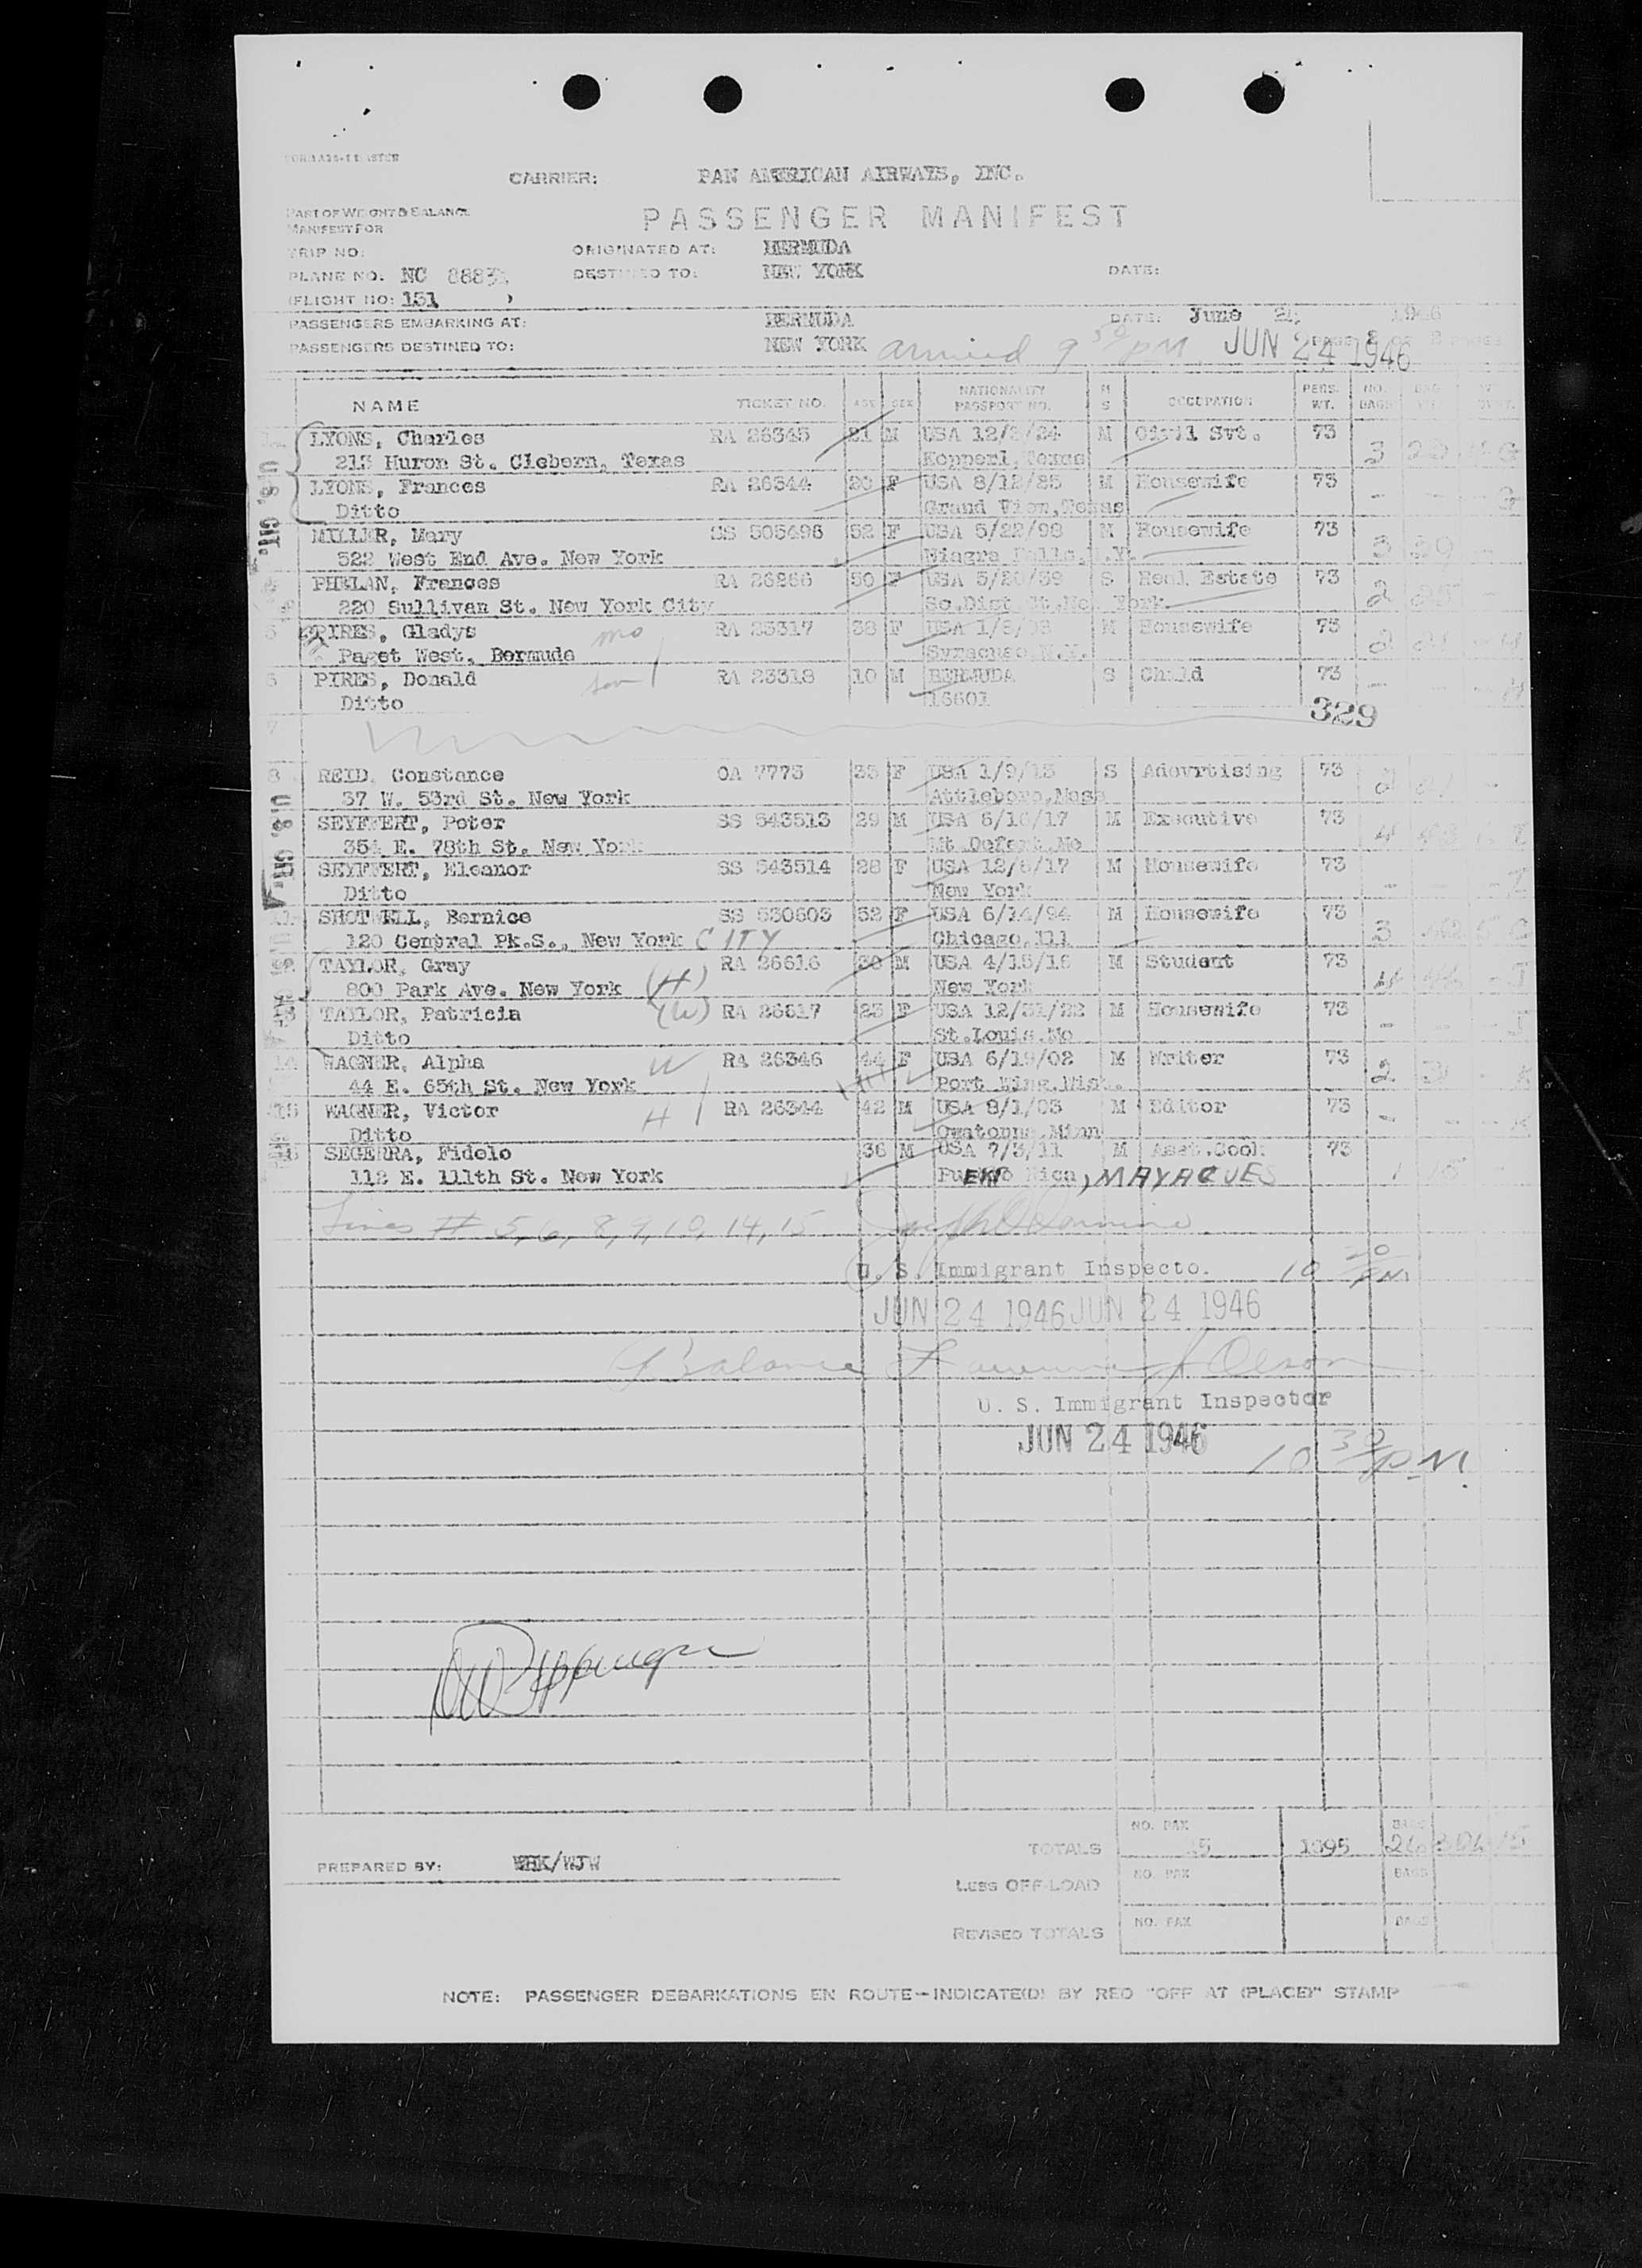 CARRIER: PAN AMERICAN AIRWAYS, INC.
PART OF WEIGHT & BALANCE
MANIFEST FOR
PASSENGER MANIFEST
TRIP NO: ORIGINATED AT: BERMUDA
PLANE NO. NC DESTINED TO: NEW YORK DATE:
(FLIGHT NO: 131 )
PASSENGERS EMBARKING AT: BERMUDA DATE: June 1946
PASSENGERS DESTINED TO: NEW YORK arrived 9 50 PM JUN 24 1946
NAME TICKET NO. AGE SEX NATIONALITY PASSPORT NO. M S OCCUPATION PERS. WT. NO. BAGS
LYONS, Charles RA 26345 21 M USA 12/2/24 M Civil Svt. 73 3
213 Huron St. Clebern, Texas Kopperl, Texas
LYONS, Frances RA 26344 20 F USA 8/12/25 M Housewife 73 -
Ditto Grand View, Texas
MILLER, Mary SS 505498 52 F USA 5/22/98 M Housewife 73 3 39
522 West End Ave. New York Niagra Falls, N.Y.
PHELAN, Frances RA 26266 50 F USA S Real Estate 73 2
220 Sullivan St. New York City So. Dist. Ct. York
PIRES, Gladys mo RA 23317 38 F USA M Housewife 73 2
Paget West, Bermuda Syracuse, N.Y.
6 PIRES, Donald son RA 23318 10 M BERMUDA S Child 73 -
Ditto 16601 329
7
8 REID, Constance OA 7773 33 F USA 1/9/13 S Adovrtising 73 2
37 W. 53rd St. New York Attleboro, Mass
SEYFFERT, Peter SS 543513 29 M USA 6/16/17 M Executive 73 4
354 E. 78th St. New York
SEYFFERT, Eleanor SS 543514 28 F USA 12/6/17 M Housewife 73 -
Ditto New York
11 SHOTWELL, Bernice SS 530603 52 F USA 6/14/94 M Housewife 73 3
120 Central Pk.S., New York CITY Chicago, Ill
TAYLOR, Gray RA 26616 30 M USA 4/15/16 M Student 73 4
800 Park Ave. New York (H) New York
TAYLOR, Patricia (W) RA 26617 23 F USA 12/31/22 M Housewife 73 -
Ditto St. Louis, Mo
14 WAGNER, Alpha W RA 26346 44 F USA 6/19/02 M Writer 73 2
44 E. 65th St. New York Port Wing, Wisc.
15 WAGNER, Victor H RA 26344 42 M USA 8/1/03 M Editor 73 -
Ditto Owatonna, Minn
SEGERRA, Fidelo 36 M USA 7/3/11 M Asst. Cook 73 1
112 E. 111th St. New York Puerto Rica, MAYAGUES
Lines # 5, 6, 8, 9, 10, 14, 15
U. S. Immigrant Inspecto. 10 20 PM
JUN 24 1946 JUN 24 1946
Balance
U. S. Immigrant Inspector
JUN 24 1946
10 30 PM
U.S. CIT.
U.S. CIT.
NO. PAX BAGS
TOTALS 15 1095 26
PREPARED BY: WRK/WJW
NO. PAX BAGS
LESS OFF-LOAD
NO. PAX BAGS
REVISED TOTALS
NOTE: PASSENGER DEBARKATIONS EN ROUTE—INDICATE(D) BY RED "OFF AT (PLACE)" STAMP